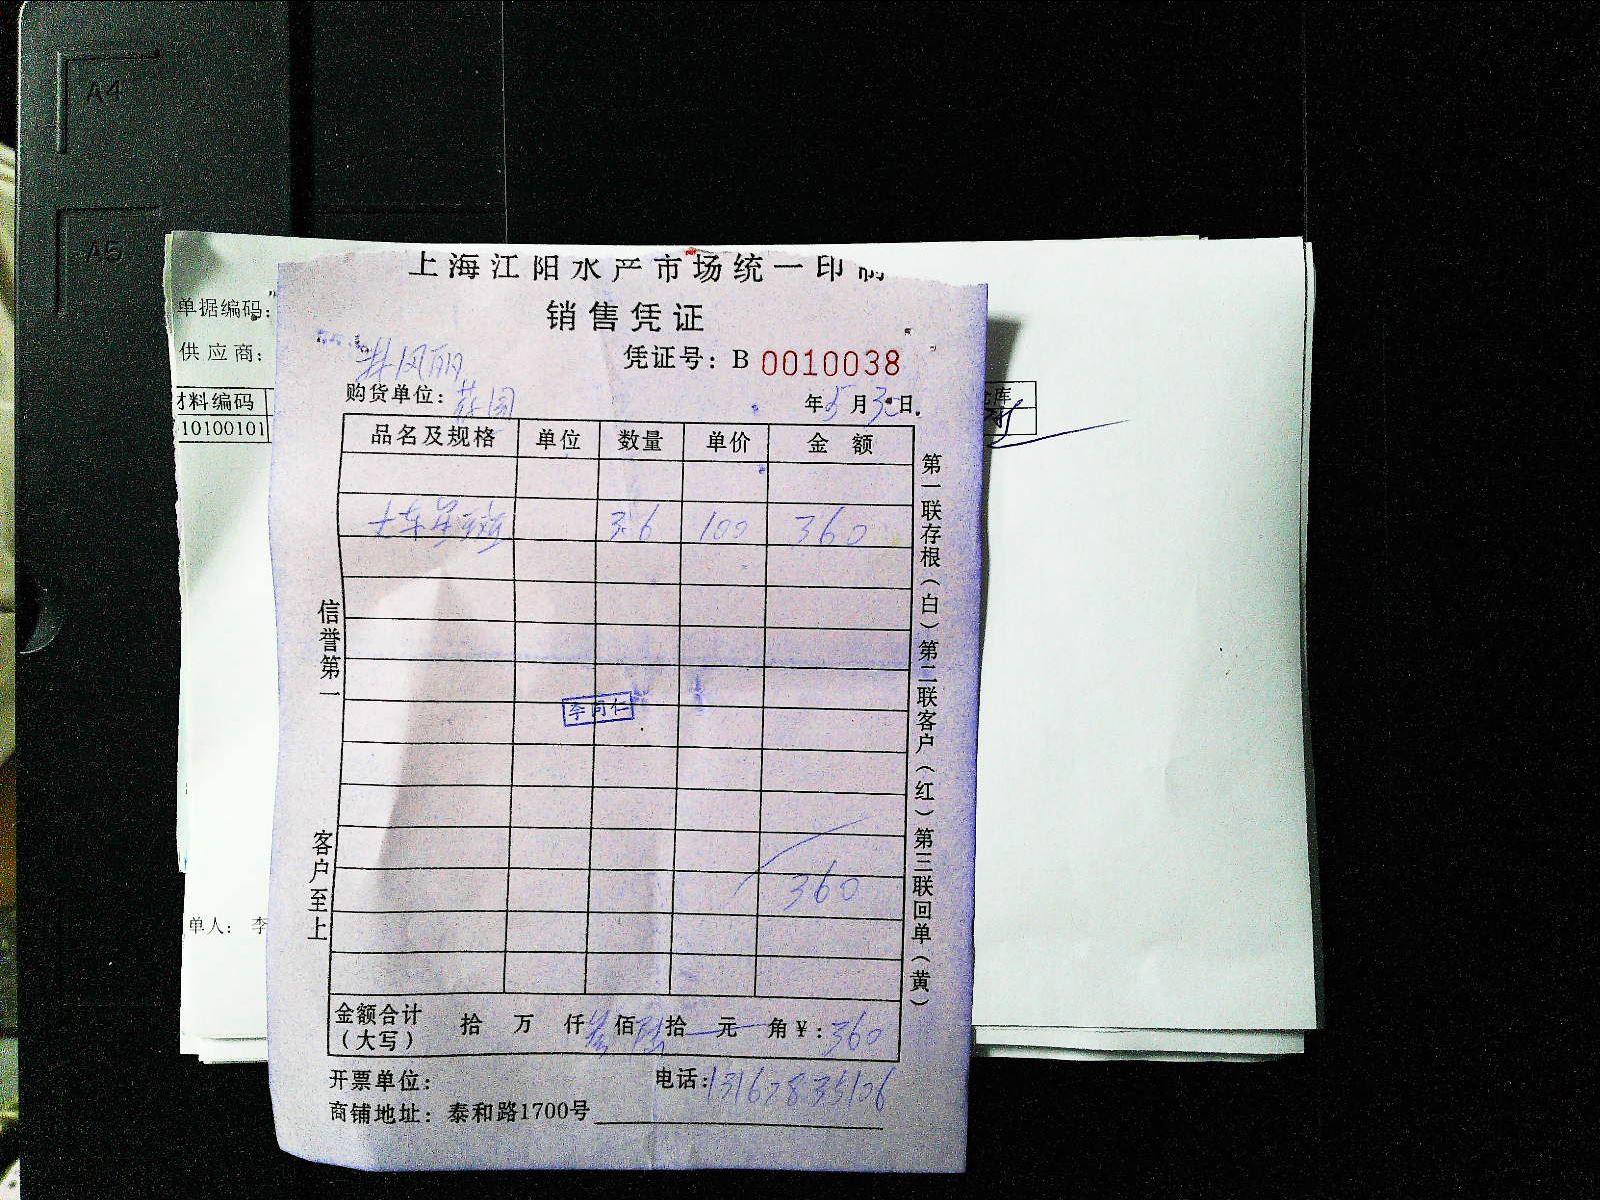 A4
A5
上海江阳水产市场统一印制
销售凭证
单据编码:
供应商:
凭证号: B 0010038
购货单位:
年5月30日.
材料编码
10100101
仓库
品名及规格 单位 数量 单价 金额
3.6 100 360
李同仁
360
信誉第一
客户至上
第一联存根(白)第二联客户(红)第三联回单(黄)
单人: 李
金额合计(大写) 拾 万 仟叁佰陆拾 元 角¥: 360
开票单位: 电话: 13162835106
商铺地址: 泰和路1700号